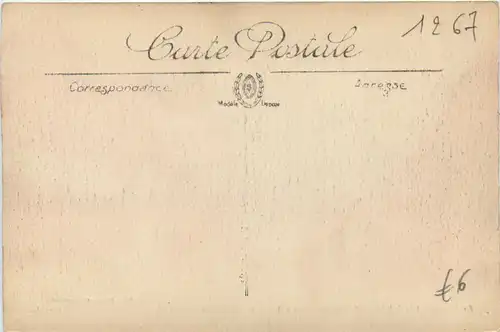 1267
Carte Postale
Correspondance Adresse
Modèle Déposé
£6